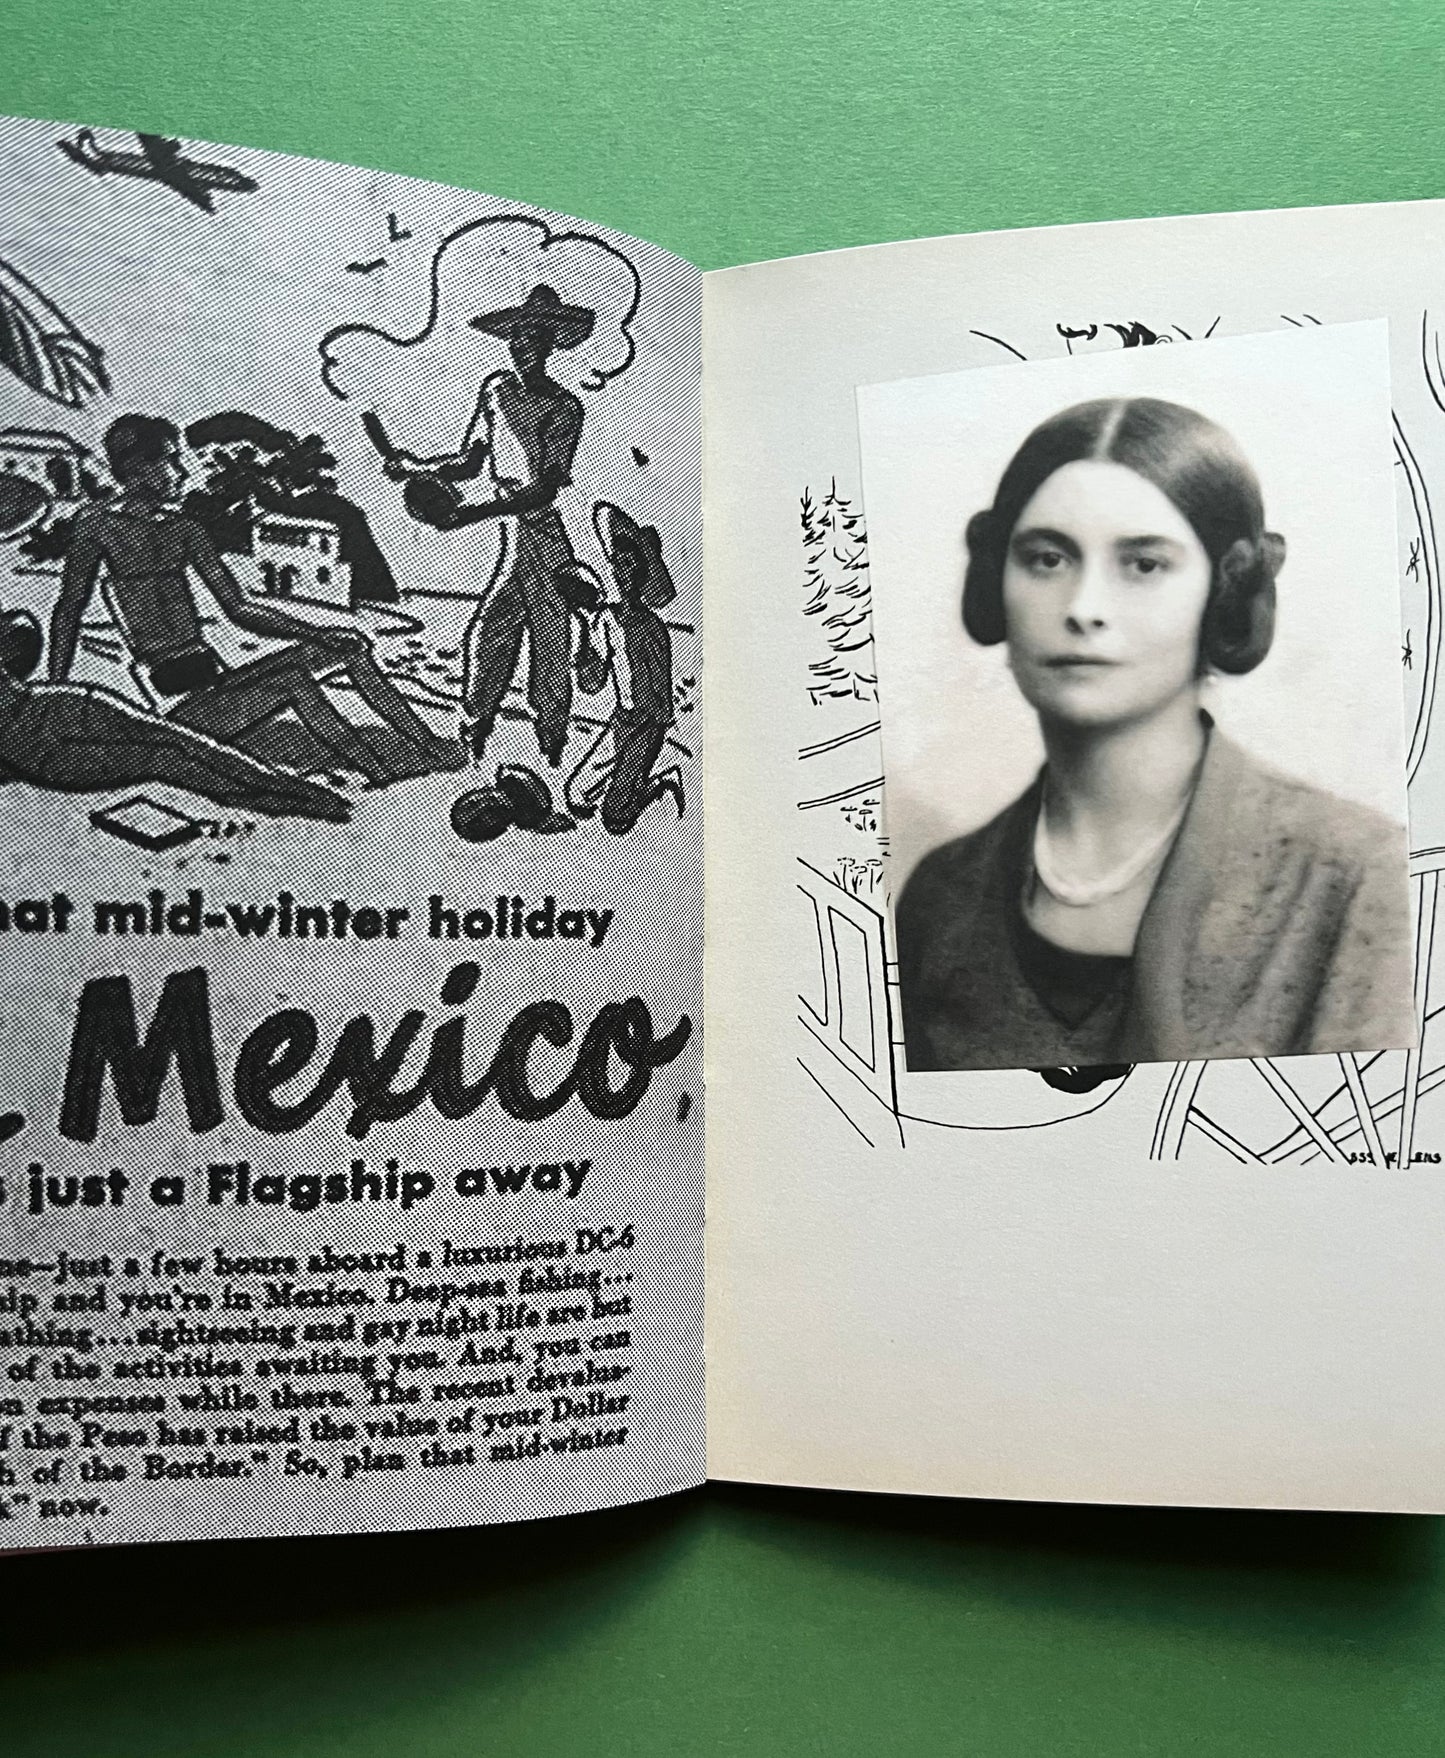 mid-winter holiday
Mexico,
just a Flagship away
just a few hours aboard a luxurious DC-6
and you're in Mexico. Deep-sea fishing...
sightseeing and gay night life are but
of the activities awaiting you. And, you can
expenses while there. The recent devalua-
the Peso has raised the value of your Dollar
of the Border." So, plan that mid-winter
now.